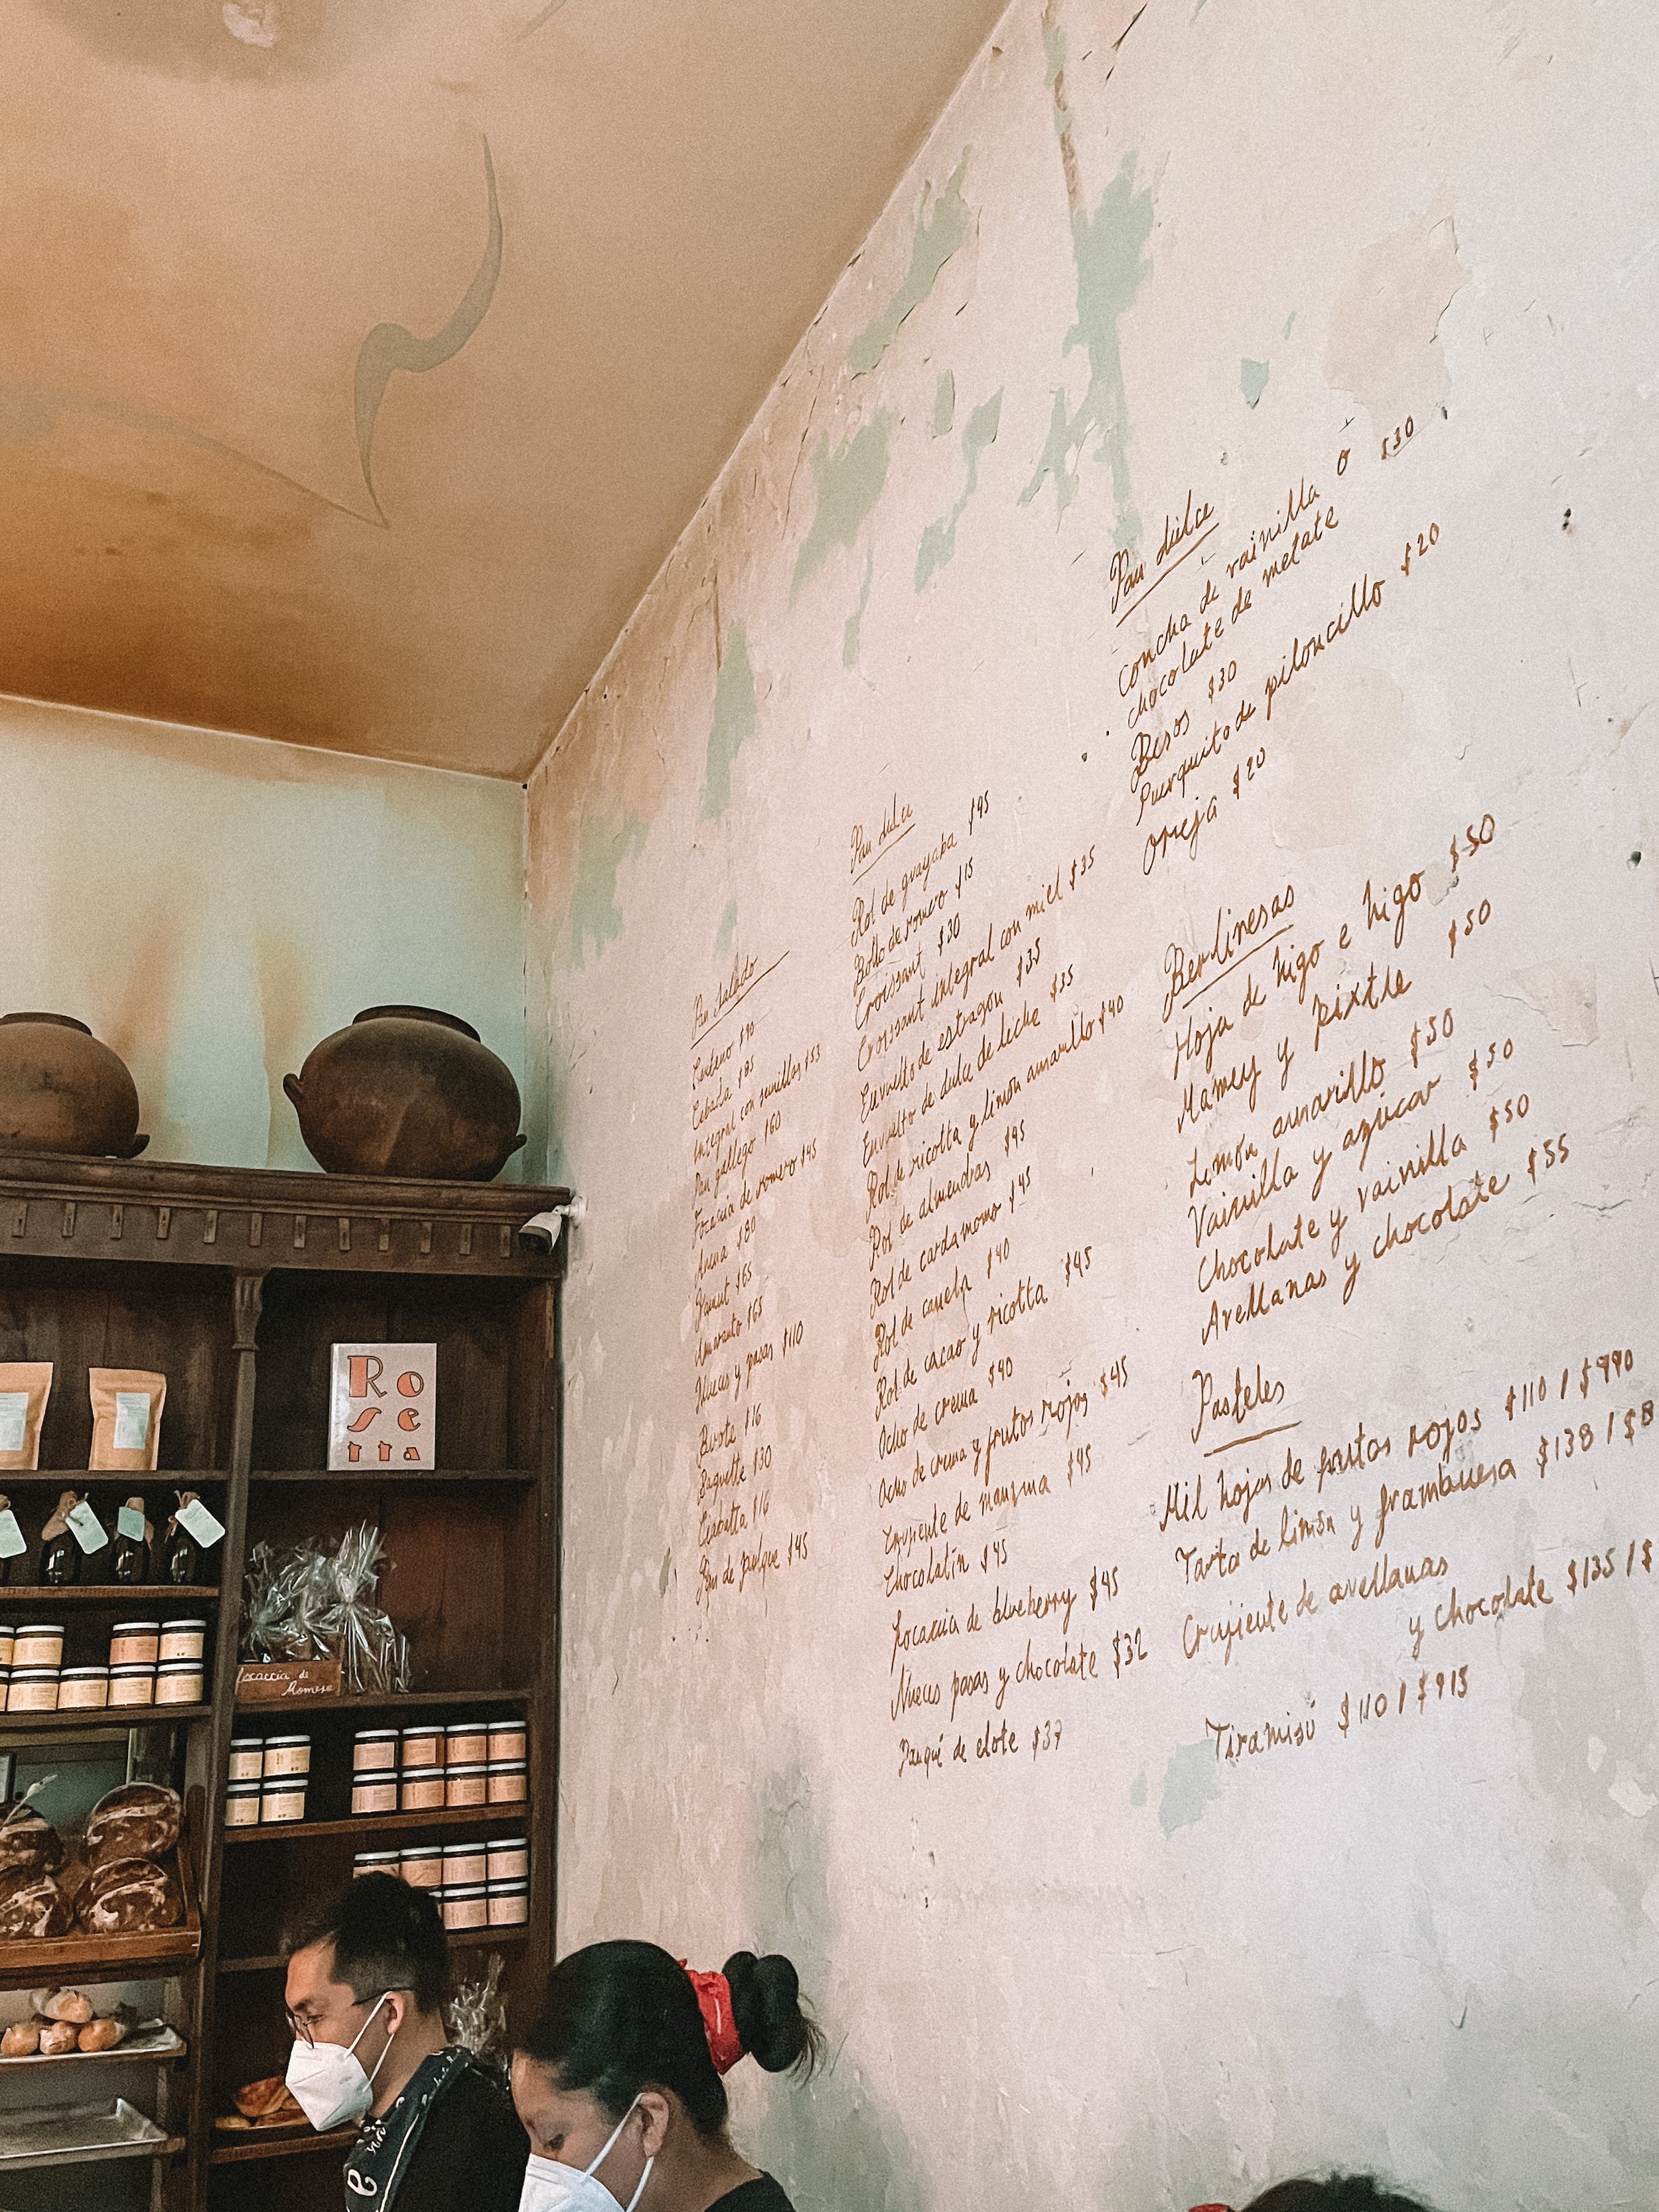 Pan salado
Centeno $90
Cebada $85
Integral con semillas $55
Pan gallego $60
Focaccia de romero $45
Avena $80
Kamut $65
Amaranto $65
Nueces y pasas $110
Birote $16
Baguette $30
Ciabatta $16
Pan de pulque $45
Pan dulce
Rol de guayaba $45
Bollo de romero $15
Croissant $30
Croissant integral con miel $35
Envuelto de estragon $35
Envuelto de dulce de leche $35
Rol de ricotta y limón amarillo $40
Rol de almendras $45
Rol de cardamomo $45
Rol de canela $40
Rol de cacao y ricotta $45
Ocho de crema $40
Ocho de crema y frutos rojos $45
Crujiente de manzana $45
Chocolatín $45
Focaccia de blueberry $45
Nueces pasas y chocolate $32
Panqué de elote $37
Pan dulce
Concha de vainilla o $30
chocolate de metate
Besos $30
Puerquito de piloncillo $20
Oreja $20
Berlinesas
Hoja de higo e higo $50
Mamey y pixtle $50
Limón amarillo $50
Vainilla y azúcar $50
Chocolate y vainilla $50
Avellanas y chocolate $55
Pasteles
Mil hojas de frutos rojos $110 / $990
Tarta de limón y frambuesa $138 / $8
Crujiente de avellanas
y chocolate $135 / $
Tiramisú $110 / $915
Ro
se
tta
Focaccia de
Romero